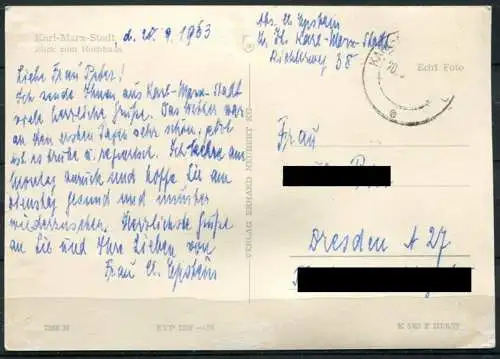 Karl-Marx-Stadt
Blick zum Hochhaus
d. 20. 9. 1963
Liebe Frau Peter!
Ich sende Ihnen aus Karl-Marx-Stadt
viele herzliche Grüße. Das Wetter war
an den ersten Tagen sehr schön, jetzt
ist es trübe u. regnerisch. Ich fahre am
Montag zurück und hoffe Sie am
Dienstag gesund und munter
wiederzusehen. Herzlichste Grüße
an Sie und Ihre Lieben von
Frau E. Epstein
VERLAG ERHARD NEUBERT KG
Abs. E. Epstein
z. Zt. Karl-Marx-Stadt
Richterweg 38
Echt Foto
Frau
Dresden A 27